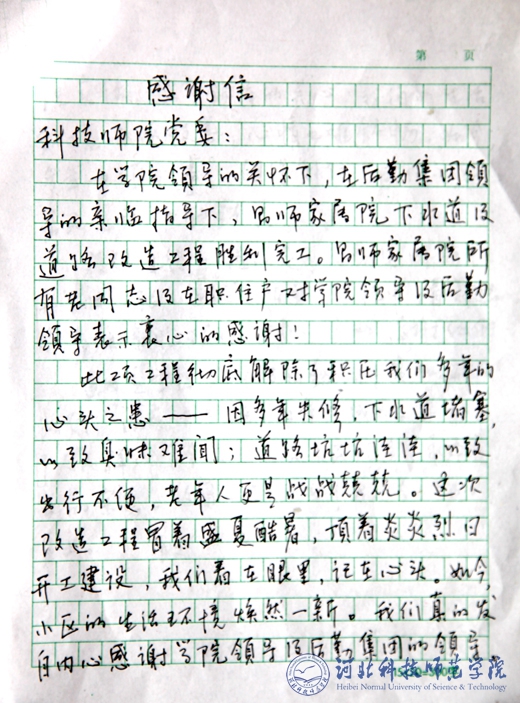 第 页
感谢信
科技师院党委：
在学院领导的关怀下，在后勤集团领
导的亲临指导下，昌师家属院下水道及
道路改造工程胜利完工。昌师家属院所
有老同志及在职住户对学院领导及后勤
领导表示衷心的感谢！
此项工程彻底解除了积压我们多年的
心头之患——因多年失修，下水道堵塞，
以致臭味难闻；道路坑坑洼洼，以致
出行不便，老年人更是战战兢兢。这次
改造工程冒着盛夏酷暑，顶着炎炎烈日
开工建设，我们看在眼里，记在心头。如今，
小区的生活环境焕然一新。我们真的发
自内心感谢学院领导及后勤集团的领导，
河北科技师范学院
Hebei Normal University of Science & Technology